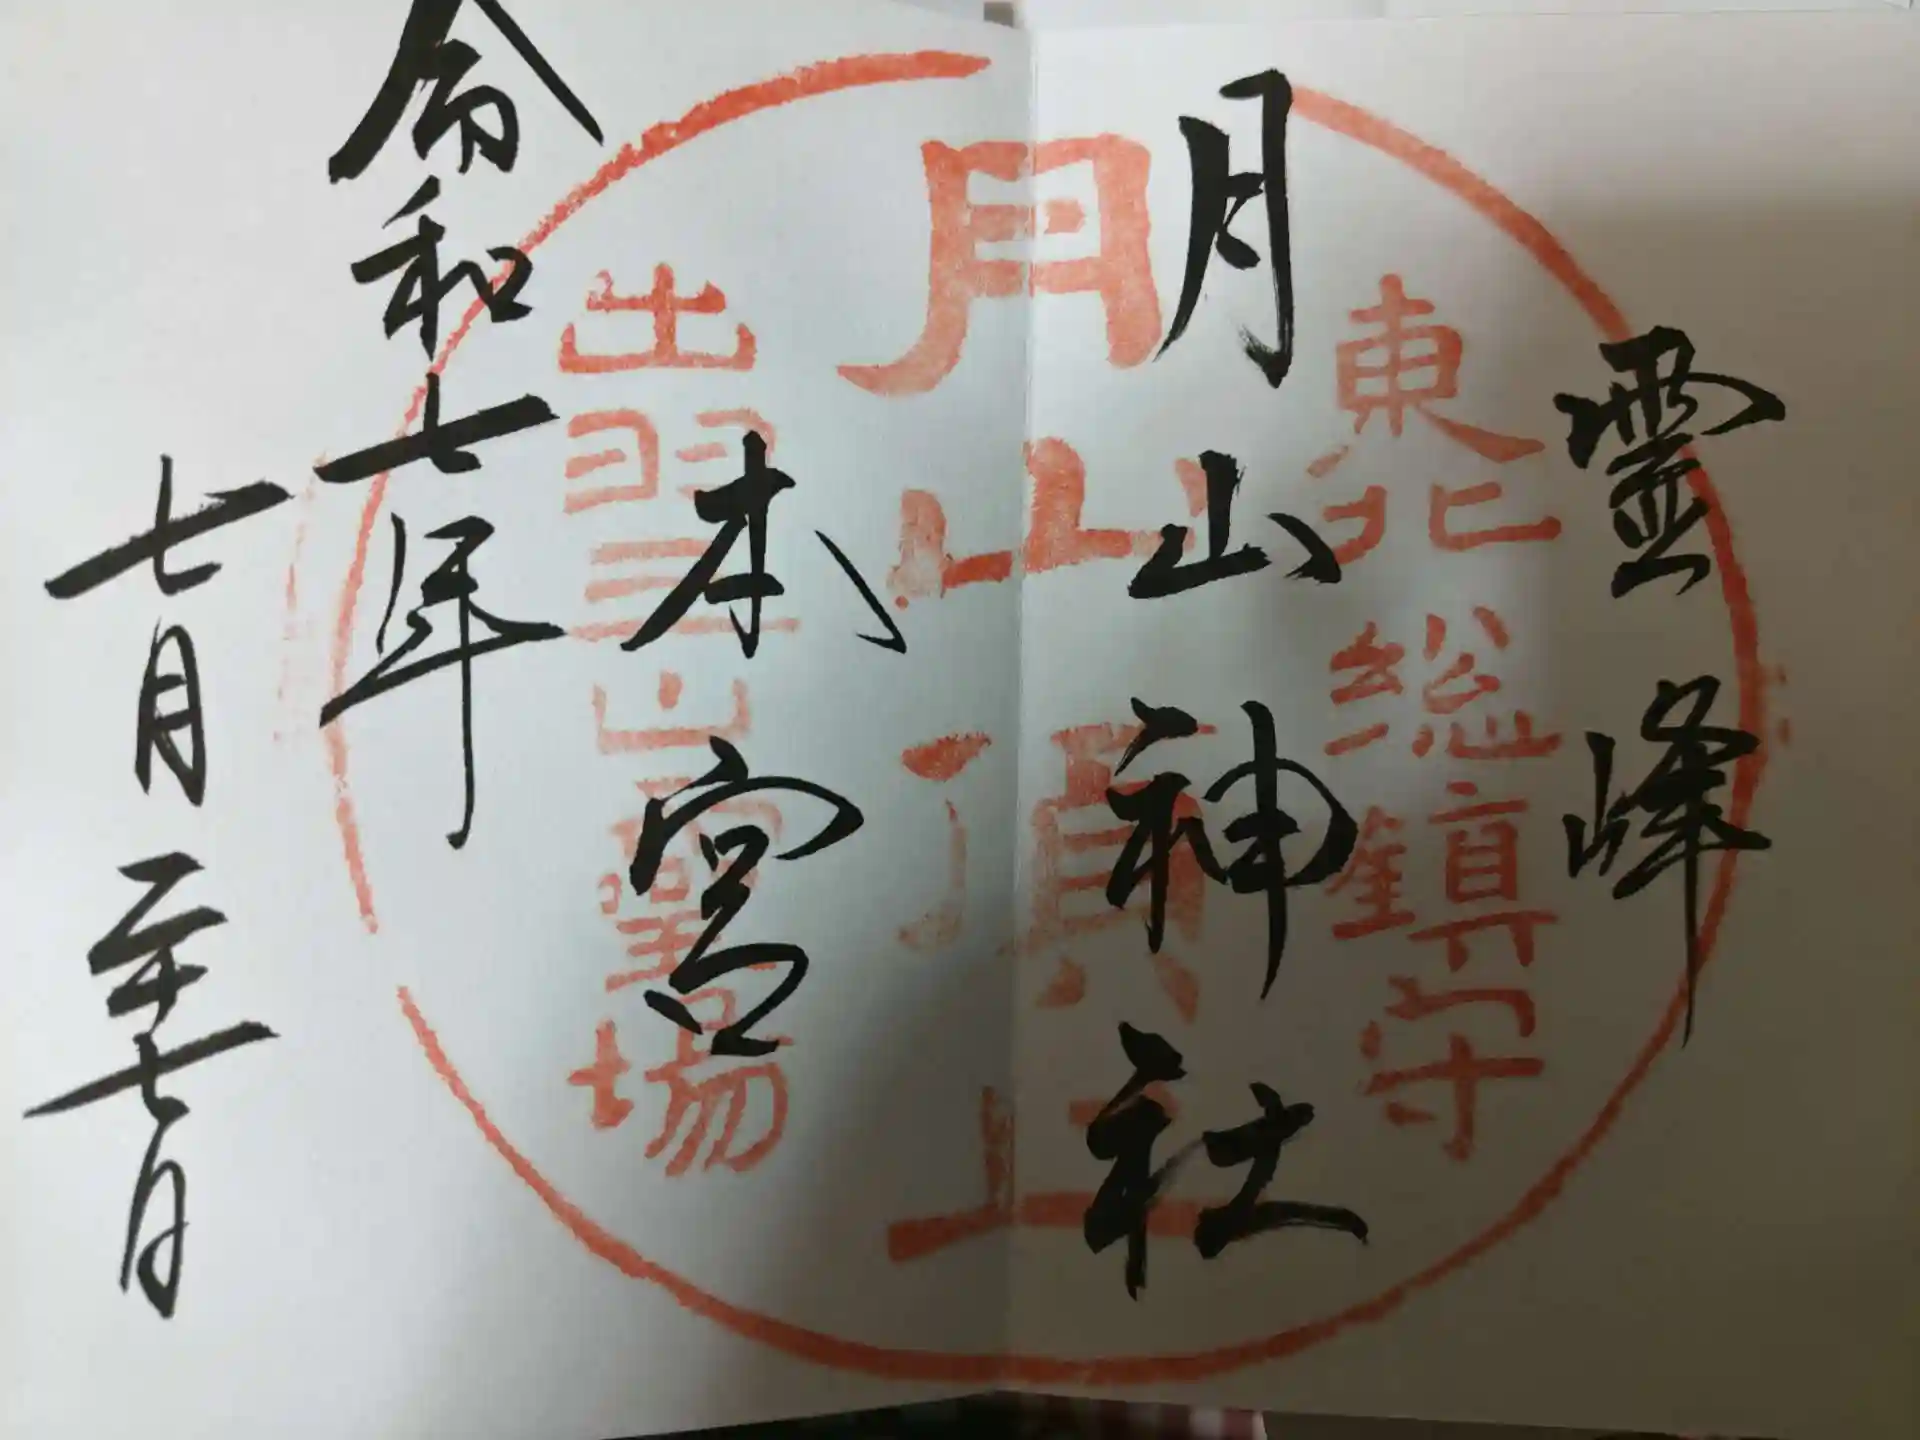 霊峰
東北総鎮守
月山神社
月山頂上
本宮
出羽三山霊場
令和七年
七月二十七日